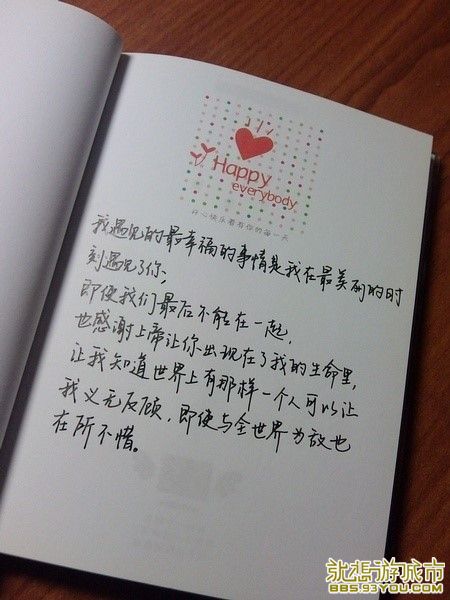 Happy
everybody
开心快乐着有你的每一天
我遇见的最幸福的事情是我在最美丽的时
刻遇见了你;
即使我们最后不能在一起,
也感谢上帝让你出现在了我的生命里,
让我知道世界上有那样一个人可以让
我义无反顾,即使与全世界为敌也
在所不惜。
就想游城市
885.93YOU.COM